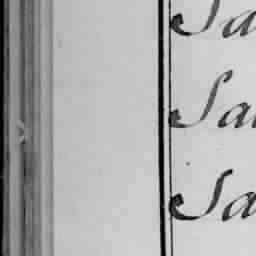 Sa
Sa
Sa